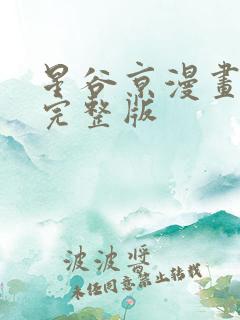 星谷京漫畫
完整版
波波醬
未经同意禁止转载